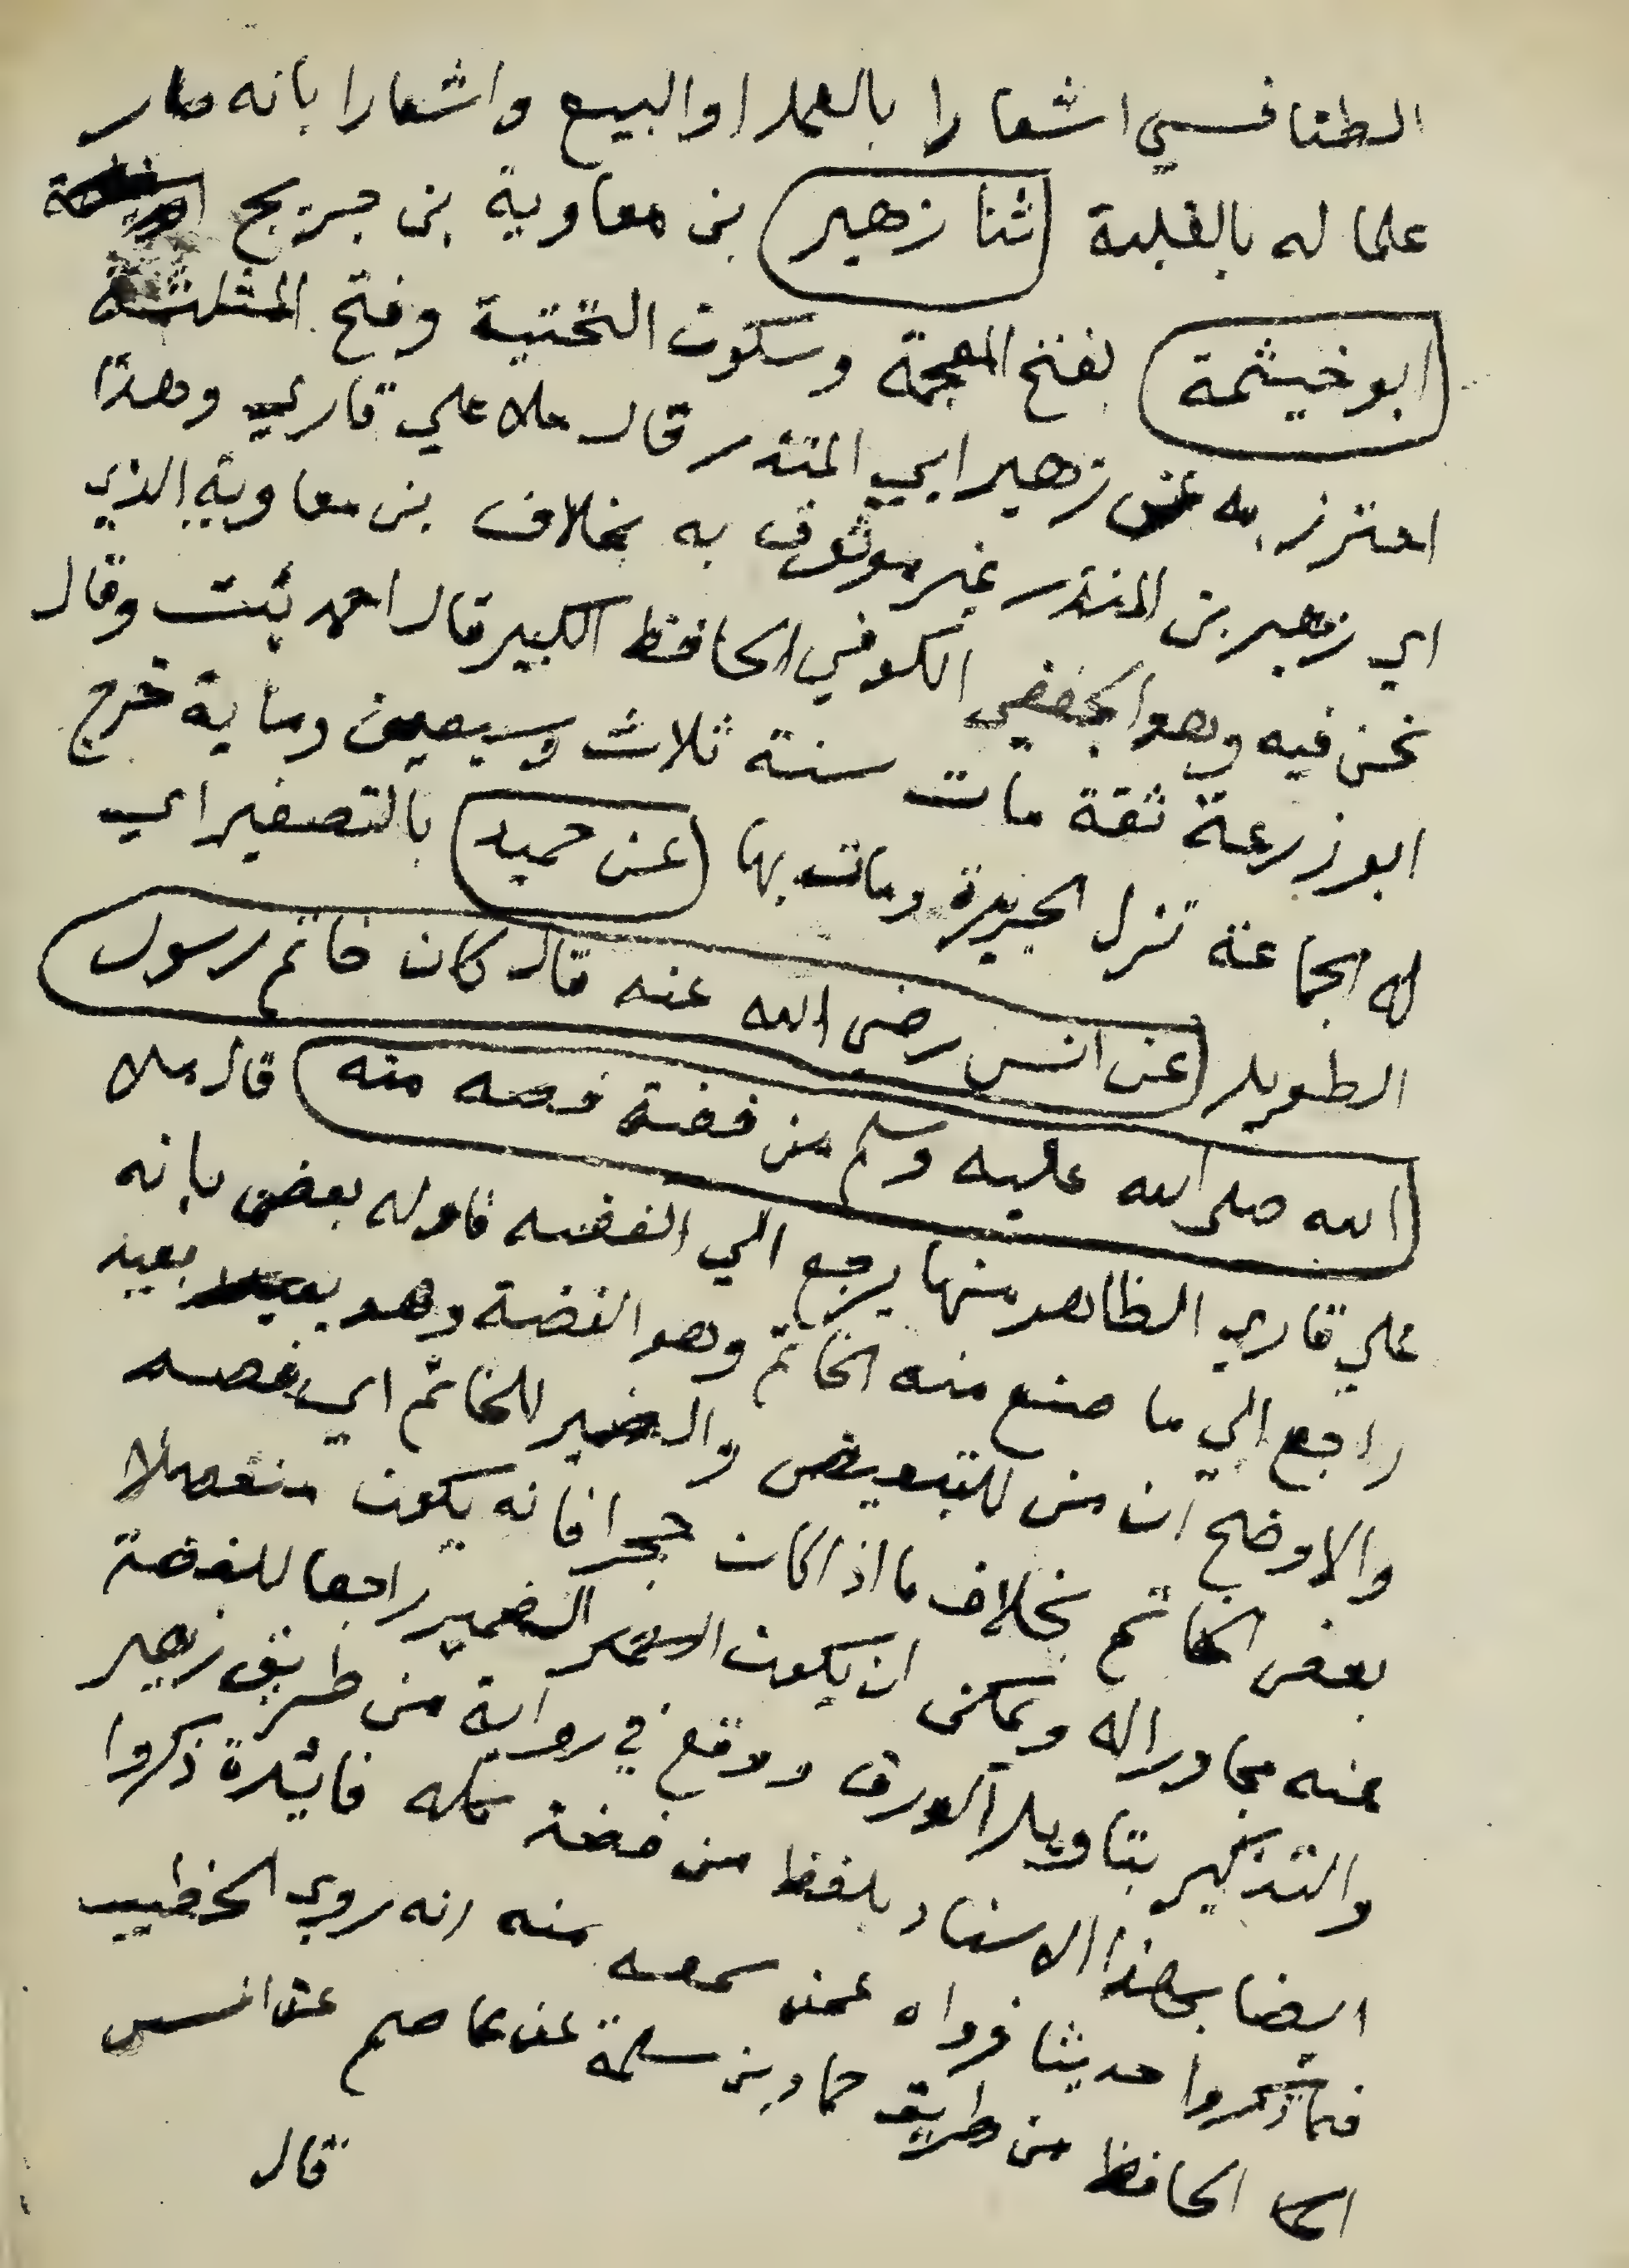 الطنافسي اشعارا بالعمل او البيع واشعارا بانه صار
علما له بالغلبة ثنا زهير بن معاوية بن جريج
ابو خيثمة بفتح المعجمة وسكون التحتية وفتح المثلثة
احترز به عن زهير ابي المنذر قال ملا علي قاري وهذا
اي زهير بن المنذر غير موثوق به بخلاف بن معاوية الذي
نحن فيه وهو الجعفي الكوفي الحافظ الكبير قال احمد ثبت وقال
ابو زرعة ثقة مات سنة ثلاث وسبعين وماية خرج
له الجماعة نزل الجزيرة ومات بها عن حميد بالتصغير اي
الطويل عن انس رضى الله عنه قال كان خاتم رسول
الله صلى الله عليه وسلم من فضة فصه منه قال ملا
علي قاري الظاهر منها يرجع الي الفضه فاوله بعض بانه
راجع الي ما صنع منه الخاتم وهو الفضة وهو بعيد
والاوضح ان من للتبعيض والضمير للخاتم اي فصه
بعض الخاتم بخلاف ما اذا كان حجرا فانه يكون منفصلا
عنه مجاورا له ويمكن ان يكون الضمير راجعا للفضة
والتذكير بتاويل الورق ووقع في رواية من طريق زهير
ايضا بهذا الاسناد بلفظ من فضة كله فائدة ذكروا
فيما ذكروا حديثا فرواه عمن سمعه منه انه روي الخطيب
الحافظ من طريق حماد بن سلمة عن عاصم عن انس
قال